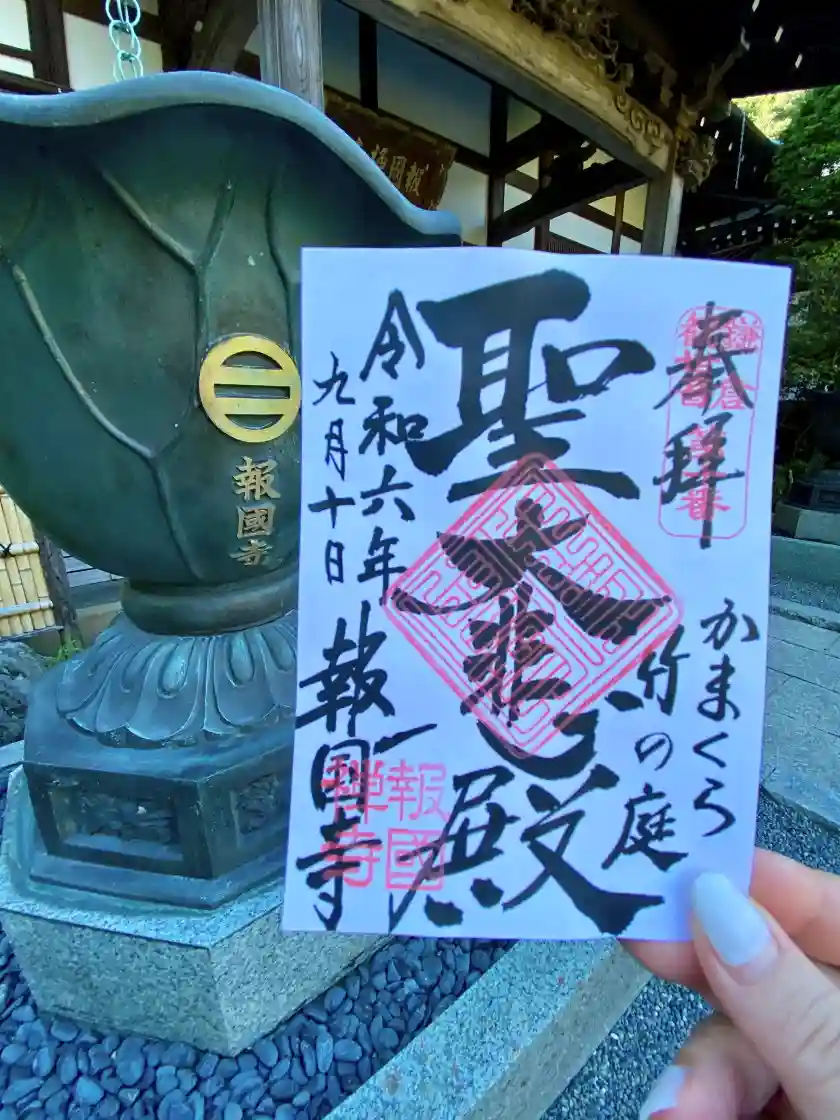 奉拝
かまくら
竹の庭
聖大悲殿
令和六年
九月十日
報国寺
報國禅寺
報國寺